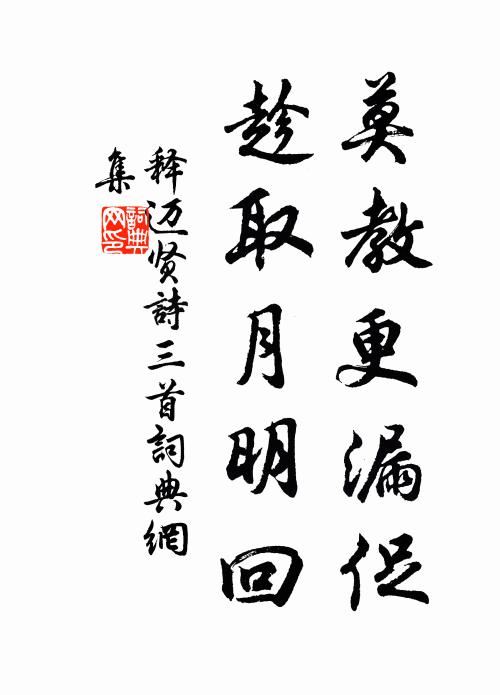 莫教更漏促
趁取月明回
释迈贤詩三首詞典網
集
詞典
网印